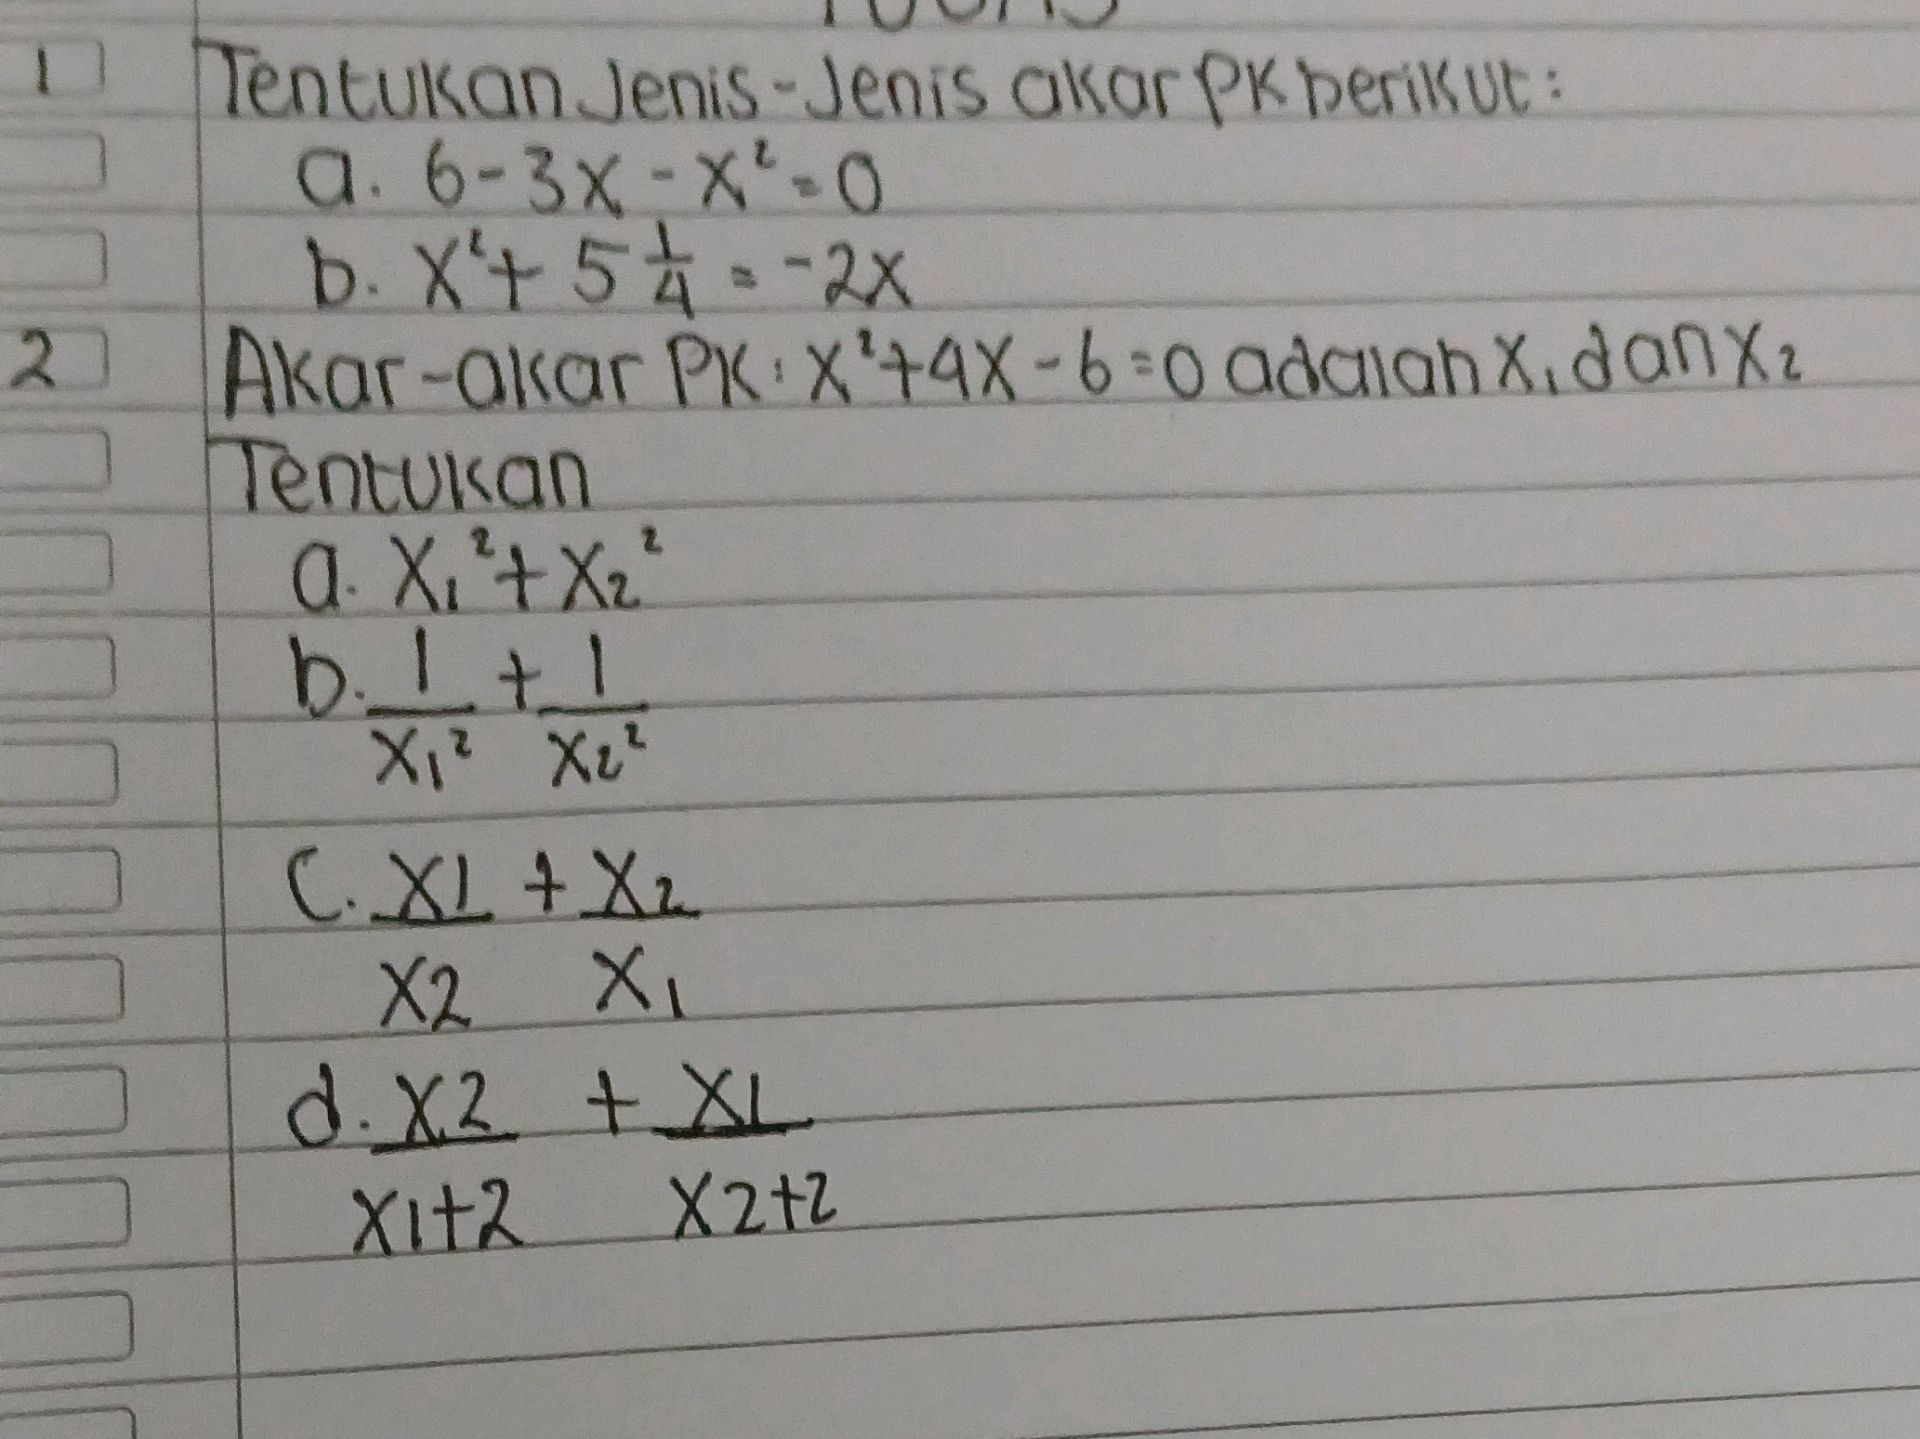 TUGAS
1 Tentukan Jenis-Jenis akar PK berikut:
a. 6-3x-x²=0
b. x²+ 5 1/4 = -2x
2 Akar-akar PK: x²+4x-6=0 adalah x₁ dan x₂
Tentukan
a. x₁²+x₂²
b. 1/x₁² + 1/x₂²
c. x1/x2 + x₂/x₁
d. x2/x1+2 + x1/x2+2